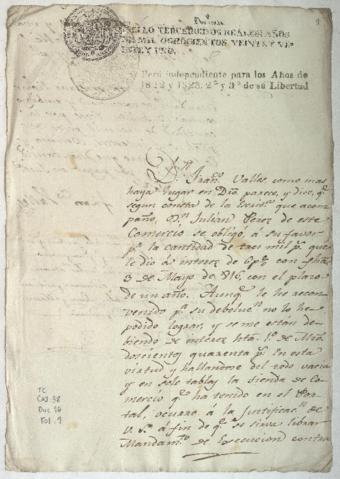 SELLO TERCERO DOS REALES AÑOS
DE MIL OCHOCIENTOS VEINTE Y VE
INTE Y UNO.
Perú independiente para los Años de
1822 y 1823. 2º y 3º de su Libertad
Dn. Franco. Valles como mas
haya lugar en Dro. parece, y dice, q.e
segun consta de la que acom
paño, Dn. Julián Perez de este
Comercio se obligó á su favor
p.r la cantidad de tres mil p.s que
le dio á interes de 6 p% con fha.
3 de Mayo de 816, con el plazo
de un año. Aunq.e le he recon
venido p.r su deboluc.n no lo he
podido lograr, y se me están de
biendo de interes hta. 1º de
doscientos quarenta p.s En esta
virtud y hallandose del todo vacia
y en solo tablas la tienda de Co
mercio q.e ha tenido en el Por
tal, ocurro á la justificac.n de
V.S. á fin de q.e se sirva librar
Mandam.to de Execucion contra
TC
Caj 38
Doc 16
Fol. 1